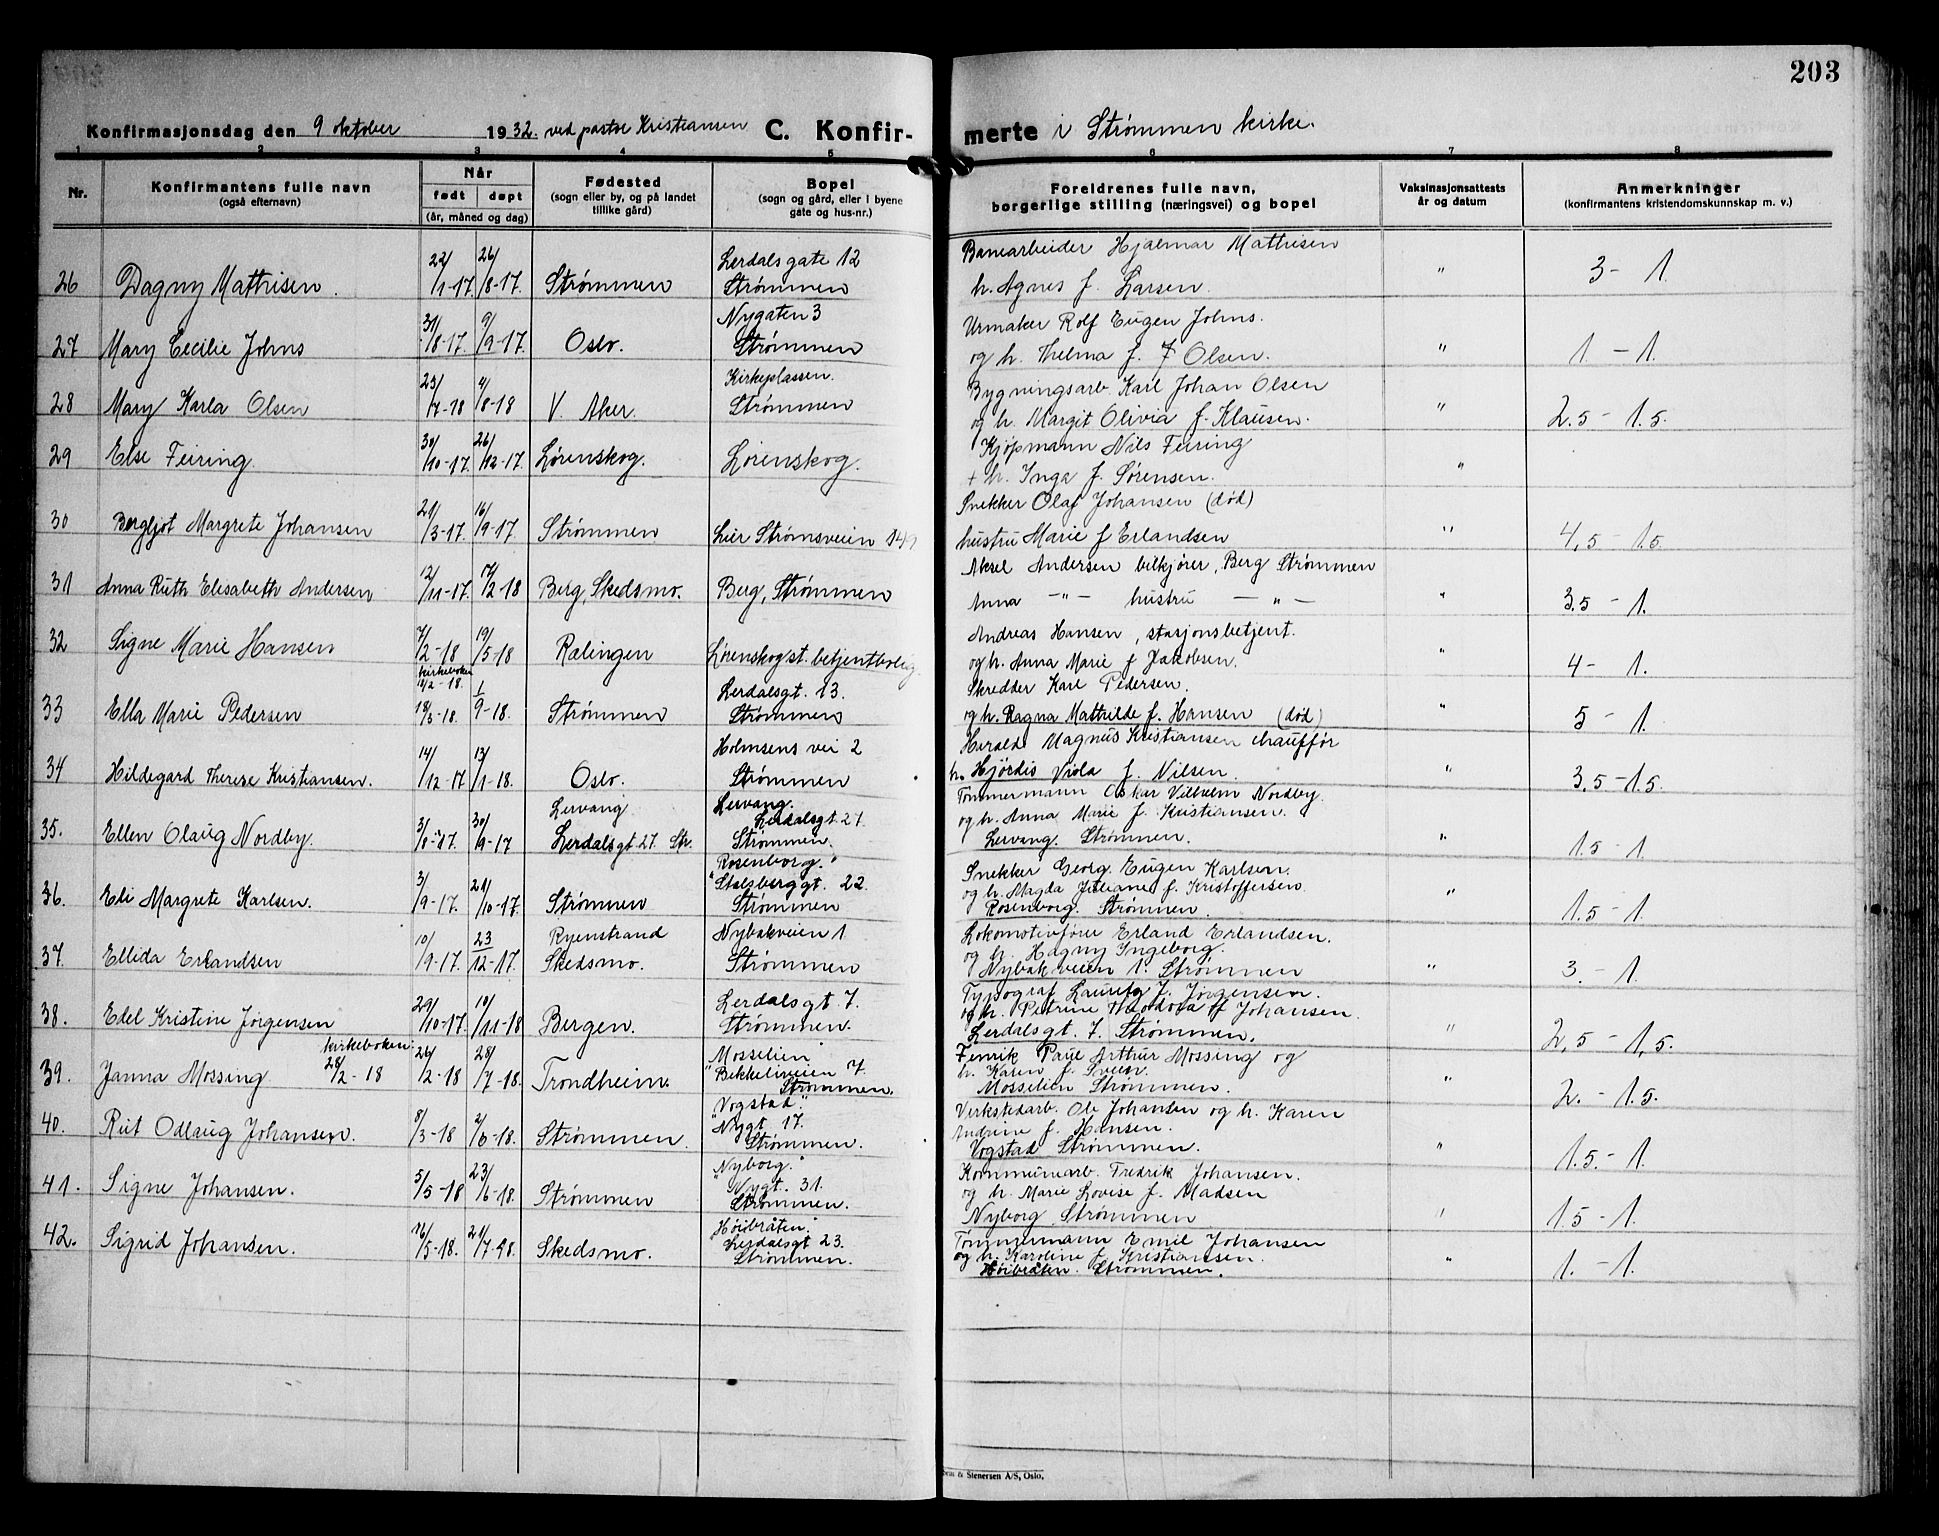 203
Konfirmasjonsdag den 9 oktober 1932. ved pastor Kristiansen C. Konfir- merte i Strømmen kirke.
1 2 3 4 5 6 7 8
Nr. Konfirmantens fulle navn (også efternavn) Når født døpt (år, måned og dag) Fødested (sogn eller by, og på landet tillike gård) Bopel (sogn og gård, eller i byene gate og hus-nr.) Foreldrenes fulle navn, borgerlige stilling (næringsvei) og bopel Vaksinasjonsattests år og datum Anmerkninger (konfirmantens kristendomskunnskap m. v.)
Lerdalsgate 12 Banearbeider Hjalmar Mathisen
26 Dagny Mathisen. 22/1-17. 26/8-17. Strømmen Strømmen h. Agnes f. Larsen. " 3 - 1.
Nygaten 3 Urmaker Rolf Eugen Johns.
27 Mary Cecilie Johns 31/8-17. 9/9-17. Oslo. Strømmen og h. Thelma f. F Olsen. " 1 - 1.
Kirkeplassen. Bygningsarb. Karl Johan Olsen
28 Mary Karla Olsen 23/7-18 4/8-18 V. Aker. Strømmen og h. Margit Olivia f. Klausen. " 2.5 - 1.5.
Kjøpmann Nils Feiring
29 Else Feiring. 30/10-17. 26/12-17. Lørenskog. Lørenskog. + h. Inga f. Sørensen. "
Snekker Olaf Johansen (død)
30 Bergljot Margrete Johansen 21/3-17. 16/9-17. Strømmen Lier Strømsveien 149 hustru Marie f Erlandsen " 4,5 - 1.5.
Aksel Andersen bilkjører, Berg Strømmen
31 Anna Ruth Elisabeth Andersen 12/11-17. 17/2-18 Berg, Skedsmo. Berg, Strømmen Anna - " - hustru - " - " 3.5 - 1.
Andreas Hansen, stasjonsbetjent.
32 Signe Marie Hansen 7/2-18 19/5-18 Rælingen Lørenskog st. betjentbolig og h. Anna Marie f Jakobsen. " 4 - 1.
kirkeboken 18/2-18. Lerdalsgt. 13. Skredder Karl Pedersen.
33 Ella Marie Pedersen 18/3-18. 1/9-18. Strømmen Strømmen og h. Ragna Mathilde f. Hansen (død) " 5 - 1.
Holmsens vei 2 Harald Magnus Kristiansen chauffør
34 Hildegard Therese Kristiansen. 14/12-17 13/1-18. Oslo. Strømmen h. Hjørdis Viola f. Nilsen. " 3.5 - 1.5
Lervang Lervang. Tømmermann Oskar Vilhelm Nordby.
Lerdalsgt. 27. og h. Anna Marie f. Kristiansen.
35. Ellen Olaug Nordby. 3/8-17. 30/9-17 Lerdalsgt 27. Str. Strømmen. Lervang. Strømmen. " 1.5 - 1.
"Rosenborg." Snekker Georg Eugen Karlsen.
Stalsberggt. 22. og h. Magda Juliane f. Kristoffersen.
36. Eli Margrete Karlsen. 3/9-17. 21/10-17. Strømmen Strømmen Rosenborg. Strømmen. " 1.5 - 1.
Ryenstrand Nybakveien 1 Lokomotivfører Erland Erlandsen.
og h. Hagny Ingeborg.
37. Ellida Erlandsen 10/9-17. 23/12-17. Skedsmo. Strømmen Nybakveien 1. Strømmen " 3. - 1.
Lerdalsgt 7. Typograf Lauritz J. Jørgensen.
og h. Petrine Theodora f Johansen.
38. Edel Kristine Jørgensen 29/10-17. 10/11-18 Bergen. Strømmen. Lerdalsgt. 7. Strømmen. " 2,5 - 1,5.
kirkeboken: "Mosselien" Fenrik Paul Arthur Mossing og
Bekkeliveien 7. h. Karen f. Sveen.
39. Janna Mossing. 28/2-18 26/2-18 28/7-18. Trondheim. Strømmen. Mosselien Strømmen. " 2. - 1.5.
"Vogstad". Verkstedarb. Ole Johansen og h. Karen
Nygt. 17. Andrine f. Hansen.
40. Rut Odlaug Johansen. 8/3-18 2/6-18. Strømmen. Strømmen. Vogstad Strømmen. " 1.5. - 1.
"Nyborg." Kommunearb. Fredrik Johansen.
Nygt. 31. og h. Marie Lovise f. Madsen
41. Signe Johansen. 5/5-18 23/6-18. Strømmen Strømmen. Nyborg, Strømmen " 1.5 - 1.
"Høibråten." Tømmermann Emil Johansen
Lerdalsgt 23. og h. Karoline f. Kristiansen.
42. Sigrid Johansen. 16/5-18. 21/7-18. Skedsmo. Strømmen. Høibråten. Strømmen. " 1. - 1.
& Stenersen A/S, Oslo.